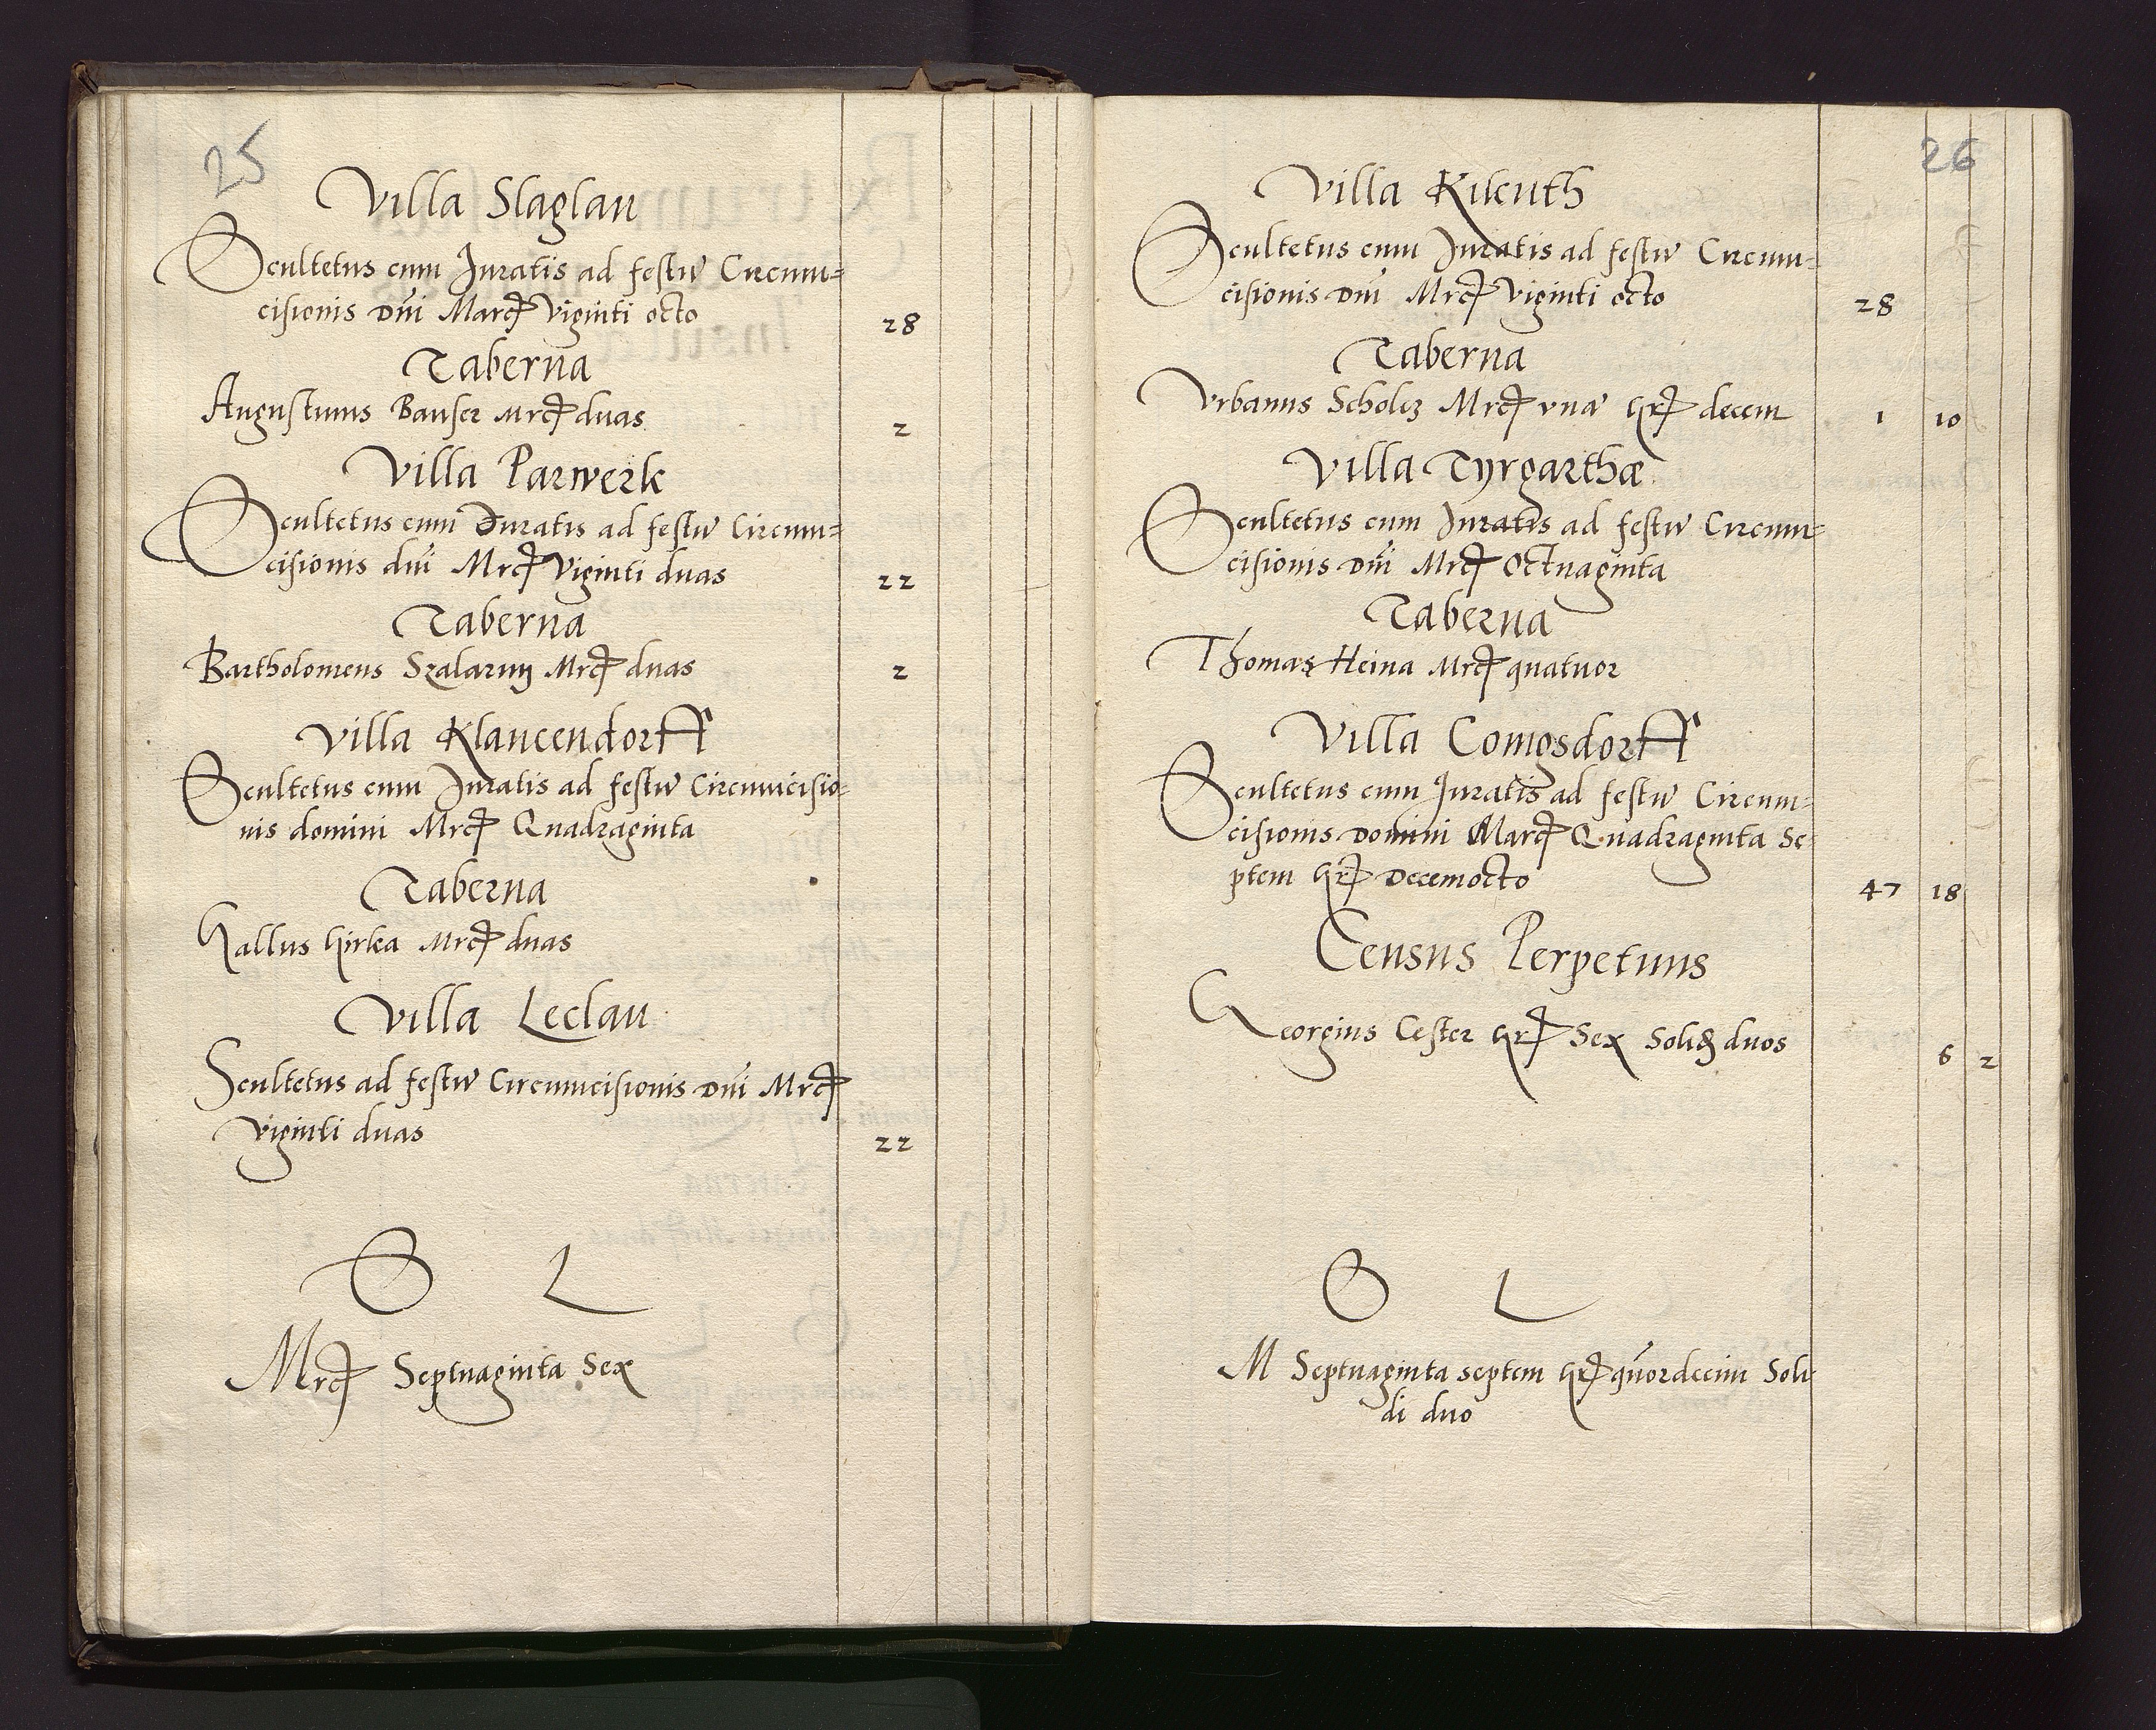 25
Villa Slaglau
Scultetus cum Juratis ad festū Circum=
cisionis dn̄i Marc Viginti octo 28
Taberna
Augustinus Banser Mrc duas 2
Villa Parwerk
Scultetus cum Juratis ad festū Circum=
cisionis dn̄i Mrc Viginti duas 22
Taberna
Bartholomeus Szalaruy Mrc duas 2
Villa Klaucendorff
Scultetus cum Juratis ad festū Circumcisio=
nis domini Mrc Quadraginta
Taberna
Gallus Girka Mrc duas
Villa Leclau
Scultetus ad festū Circumcisionis dn̄i Mrc
Viginti duas 22
S L
Mrc Septuaginta Sex
26
Villa Kikuth
Scultetus cum Juratis ad festū Circum=
cisionis dn̄i Mrc Viginti octo 28
Taberna
Vrbanus Scholcz Mrc vnā gr decem 1 10
Villa Tyrgarthæ
Scultetus cum Juratis ad festū Circum=
cisionis dn̄i Mrc Octuaginta
Taberna
Thomas Heina Mrc quatuor
Villa Comosdorff
Scultetus cum Juratis ad festū Circum=
cisionis Domini Marc Quadraginta Se=
ptem gr Decemocto 47 18
Census Perpetuus
Georgius Cester gr Sex Solid duos 6 2
S L
M Septuaginta septem gr qūordecim Soli
di duo